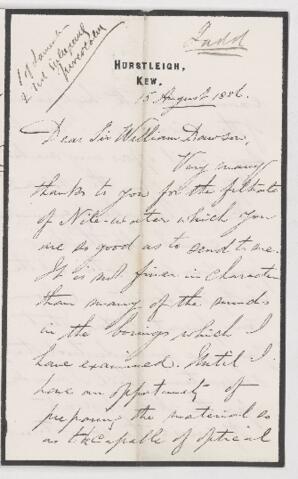 Judd
HURSTLEIGH,
KEW.
15 August 1886.
Dear Sir William Dawson,
Very many
thanks to you for the filtrate
of Nile-water which you
are so good as to send to me.
It is not finer in character
than many of the muds
in the borings which I
have examined. Until I
have an opportunity of
preparing the material so
as to be capable of optical